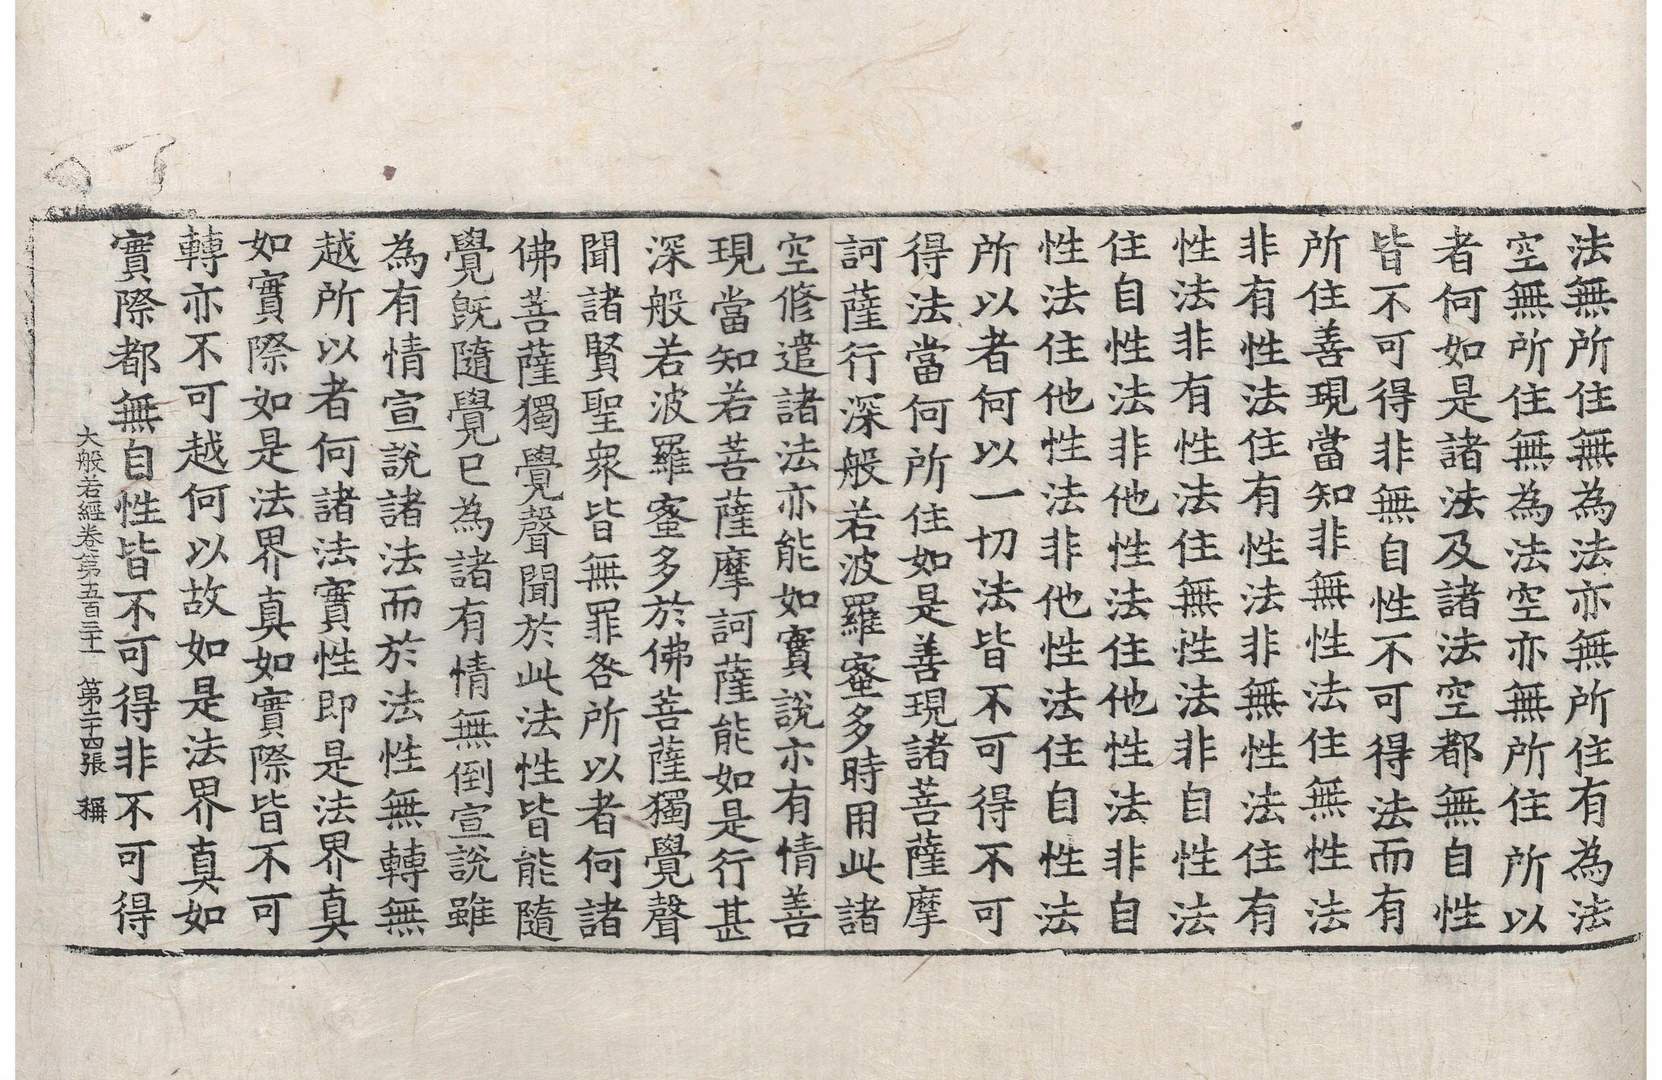 法無所住無為法亦無所住有為法
空無所住無為法空亦無所住所以
者何如是諸法及諸法空都無自性
皆不可得非無自性不可得法而有
所住善現當知非無性法住無性法
非有性法住有性法非無性法住有
性法非有性法住無性法非自性法
住自性法非他性法住他性法非自
性法住他性法非他性法住自性法
所以者何以一切法皆不可得不可
得法當何所住如是善現諸菩薩摩
訶薩行深般若波羅蜜多時用此諸
空修遣諸法亦能如實說示有情善
現當知若菩薩摩訶薩能如是行甚
深般若波羅蜜多於佛菩薩獨覺聲
聞諸賢聖衆皆無罪咎所以者何諸
佛菩薩獨覺聲聞於此法性皆能隨
覺旣隨覺已為諸有情無倒宣說雖
為有情宣說諸法而於法性無轉無
越所以者何諸法實性即是法界真
如實際如是法界真如實際皆不可
轉亦不可越何以故如是法界真如
實際都無自性皆不可得非不可得
大般若經卷第五百三十一 第二十四張 稱